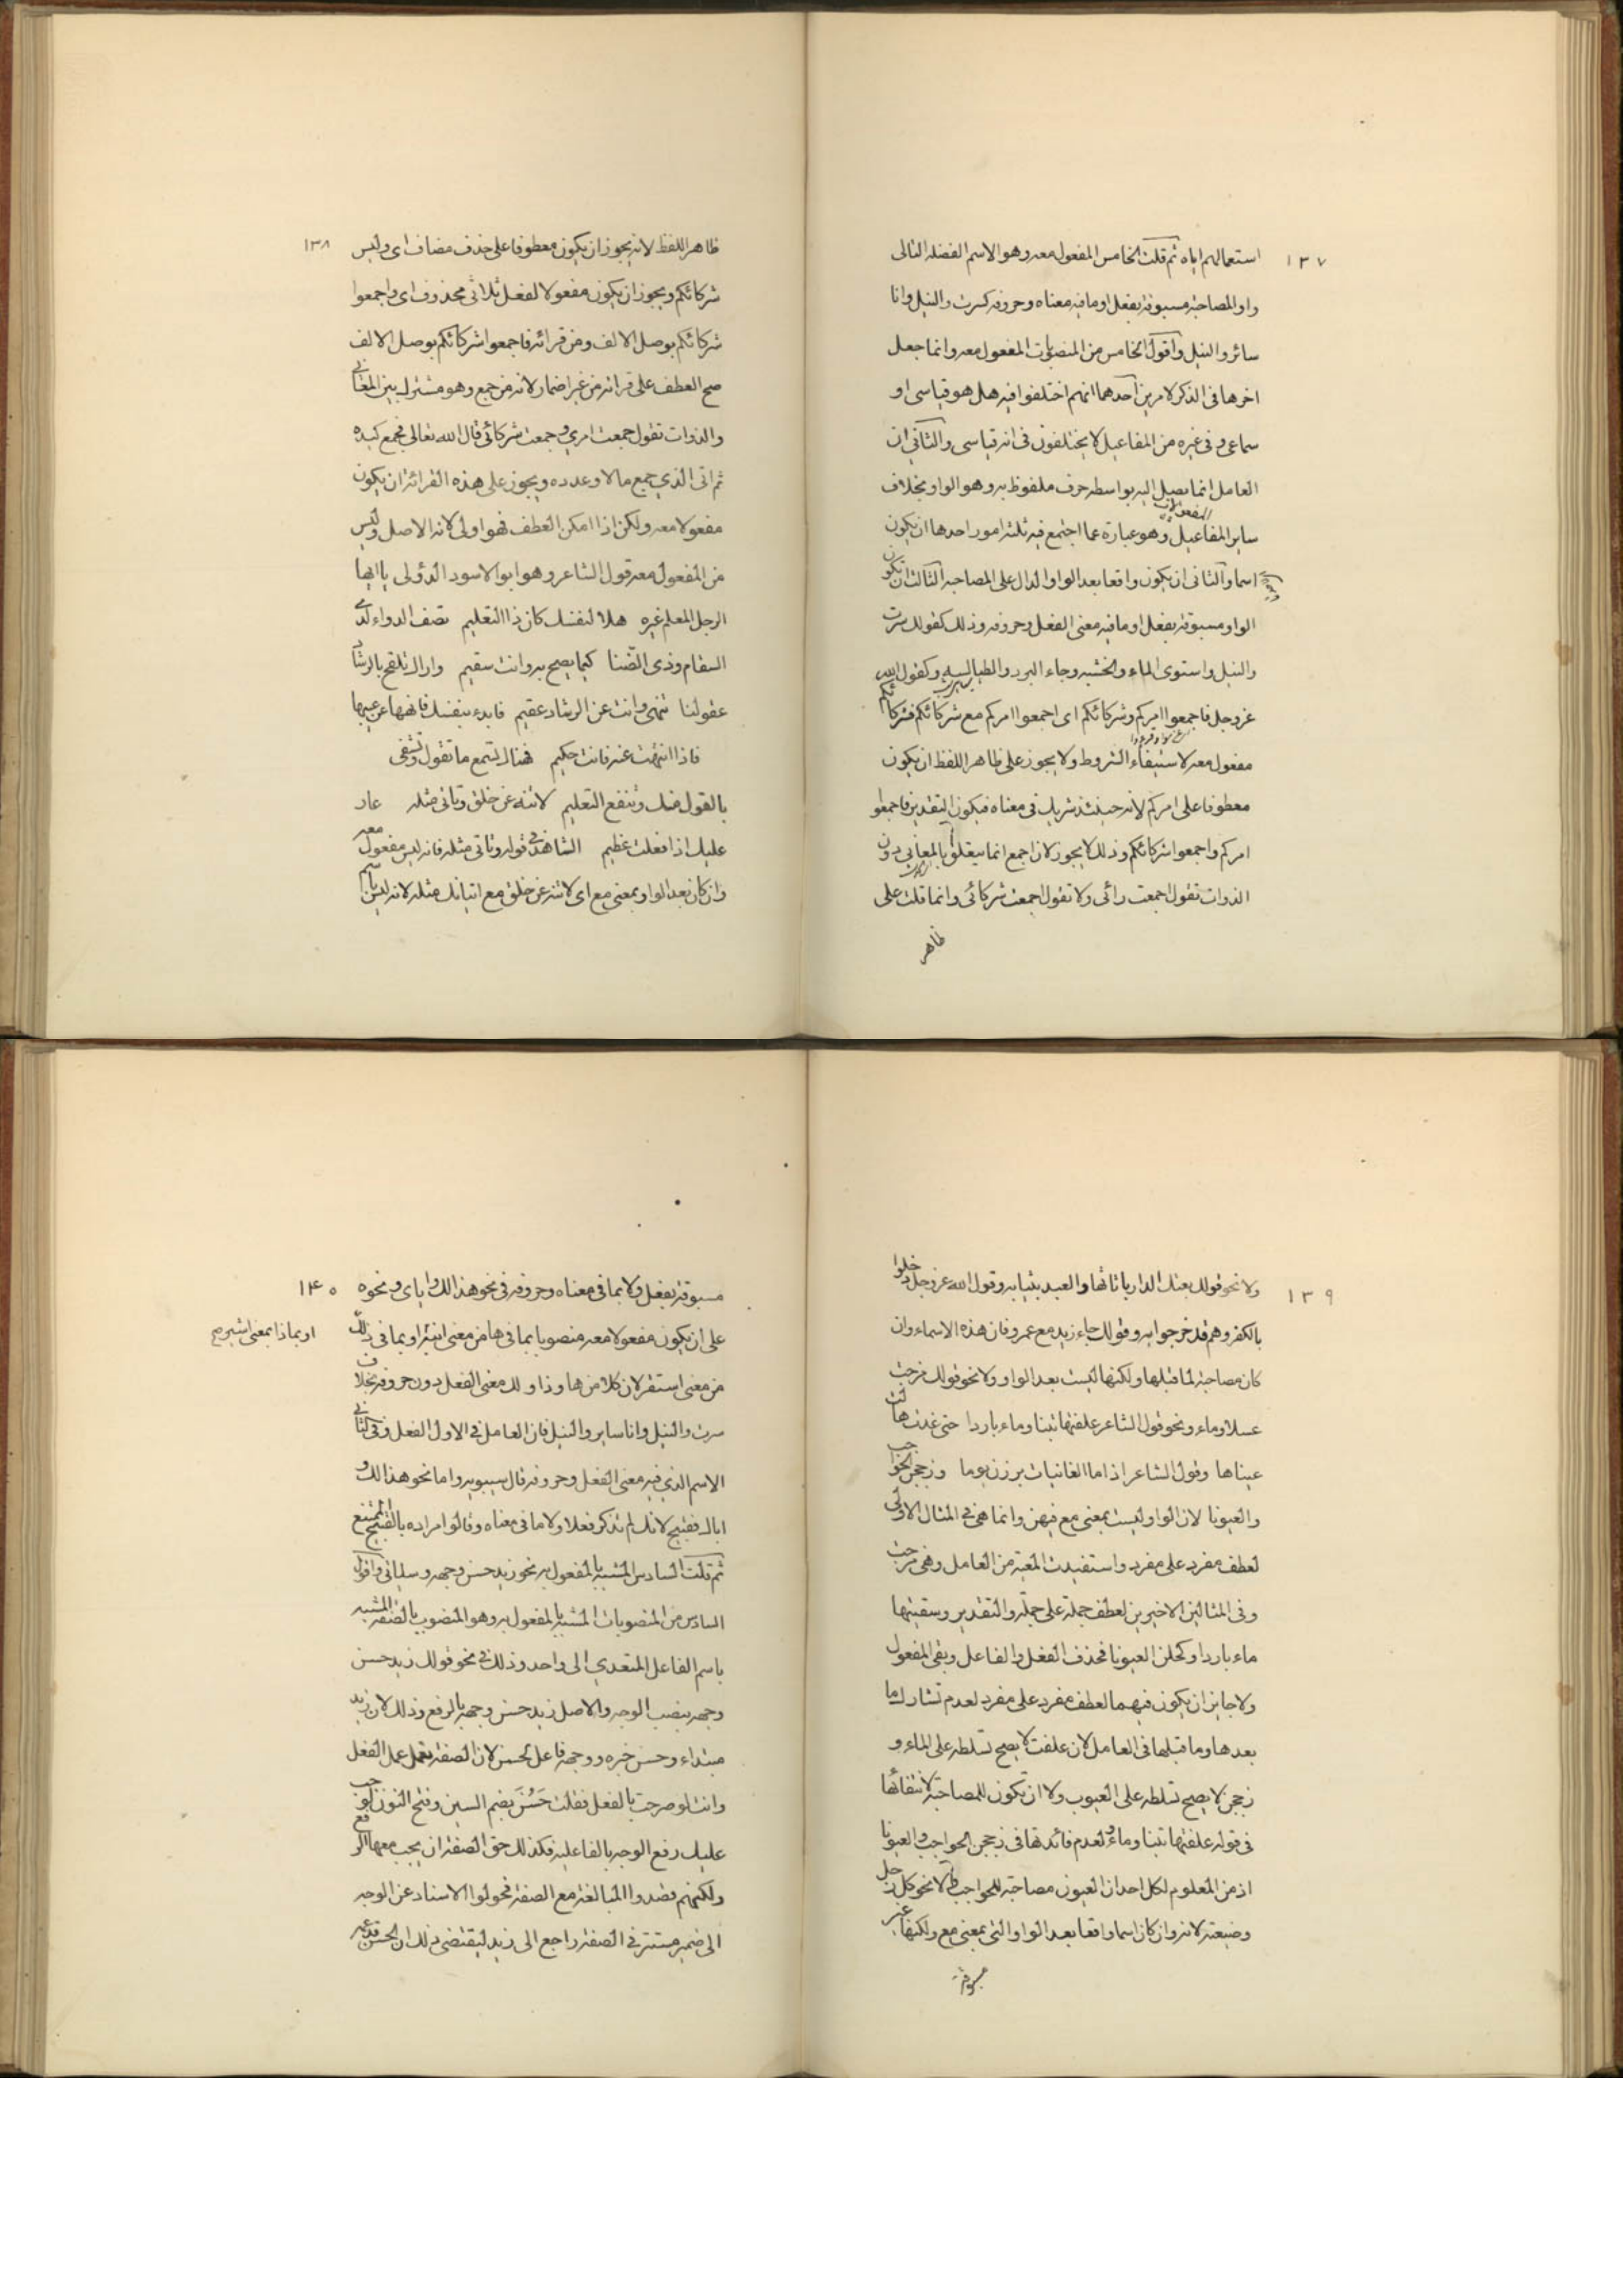 ١٣٧
استعمالهم اياه ثم قلت الخامس المفعول معه وهو الاسم الفضلة التالى
واو المصاحبة مسبوقة بفعل او ما فيه معناه وحروفه كسرت والنيل وانا
سائر والنيل واقول الخامس من المنصوبات المفعول معه وانما جعل
اخرها فى الذكر لامرين احدهما انهم اختلفوا فيه هل هو قياسى او
سماعى وفى غيره من المفاعيل لا يختلفون فى انه قياسى والثانى ان
العامل انما يصل اليه بواسطة حرف ملفوظ به وهو الواو بخلاف
المفعولات
ساير المفاعيل وهو عبارة عما اجتمع فيه ثلثة امور احدها ان يكون
اسما والثانى ان يكون واقعا بعد الواو الدال على المصاحبة الثالث ان تكون
الواو مسبوقة بفعل او ما فيه معنى الفعل وحروفه وذلك كقولك سرت
والنيل واستوى الماء والخشبه وجاء البرد والطيالسه وكقول الله
عزوجل فاجمعوا امركم وشركائكم اى اجمعوا امركم مع شركائكم فشركائكم
مفعول معه لاستيفاء الشروط ولا يجوز على ظاهر اللفظ ان يكون
معطوفا على امركم لانه حينئذ شريك فى معناه فيكون التقدير فاجمعوا
امركم واجمعوا شركائكم وذلك لا يجوز لان اجمع انما يتعلق بالمعانى دون
الذوات تقول اجمعت رائى ولا تقول اجمعت شركائى وانما قلت على
ظاهر
١٣٨
ظاهر اللفظ لانه يجوز ان يكون معطوفا على حذف مضاف اى وليس
شركائكم ويجوز ان يكون مفعولا لفعل ثلاثى محذوف اى واجمعوا
شركائكم بوصل الالف ومن قرائه فاجمعوا شركائكم بوصل الالف
صح العطف على قرائته من غير اضمار لانه من جمع وهو مشترك بين المعانى
والذوات تقول جمعت امرى و جمعت شركائى قال الله تعالى فجمع كيده
ثم اتى الذى جمع مالا وعدده ويجوز على هذه القرائة ان يكون
مفعولا معه ولكن اذا امكن العطف فهو اولى لانه الاصل وليس
من المفعول معه قول الشاعر وهو ابو الاسود الدؤلى يا ايها
الرجل المعلم غيره هلا لنفسك كان ذا التعليم تصف الدواء لذى
السقام وذى الضنا كيما يصح به وانت سقيم واراك تلقح بالرشاد
عقولنا تنهى وانت عن الرشاد عقيم فابدء بنفسك فانهها عن غيها
فاذا انتهت عنه فانت حكيم فهناك تسمع ما تقول وتشفى
بالقول منك وينفع التعليم لا تنه عن خلق وتاتى مثله عار
عليك اذا فعلت عظيم الشاهد فى قوله وتاتى مثله فانه ليس مفعول معه
وان كان بعد الواو بمعنى مع اى لا تنه عن خلق مع اتيانك مثله لانه ليس باسم
١٣٩
ولا نحو قولك بعتك الدار باثاثها والعبد بثيابه وقول الله عزوجل دخلوا
بالكفر وهم قد خرجوا به وقولك جاء زيد مع عمرو فان هذه الاسماء وان
كان مصاحبة لما قبلها ولكنها ليست بعد الواو ولا نحو قولك مزجت
عسلا وماء ونحو قول الشاعر علفتها تبنا وماء باردا حتى غدت همالت
عيناها وقول الشاعر اذا ما الغانيات برزن يوما وزججن الحواجب
والعيونا لان الواو ليست بمعنى مع فيهن وانما هى فى المثال الاول
لعطف مفرد على مفرد واستفيدت المعية من العامل وهى مزجت
وفى المثالين الاخيرين لعطف جملة على جملة والتقدير وسقيتها
ماء باردا وكحلن العيونا فحذف الفعل والفاعل وبقى المفعول
ولا جايز ان يكون فيهما لعطف مفرد على مفرد لعدم تشارك ما
بعدها وما قبلها فى العامل لان علفت لا يصح تسلطه على الماء و
زججن لا يصح تسلطه على العيوب ولا ان تكون للمصاحبة لانتفائها
فى قوله علفتها تبنا وماء ولعدم فائدتها فى زججن الحواجب والعيونا
اذ من المعلوم لكل احد ان العيون مصاحبة للحواجب ولا نحو كل رجل
وضيعته لانه وان كان اسما واقعا بعد الواو التى بمعنى مع ولكنها غير
مسبوقة
١٤٠
مسبوقة بفعل ولا بما فى معناه وحروفه فى نحو هذا لك واباى ونحوه
على ان يكون مفعولا معه منصوبا بما فى ها من معنى انبئه او بما فى ذلك
او بما ذا بمعنى اشير صح
من معنى استقر لان كلا من ها وذا ولك معنى الفعل دون حروفه بخلاف
سرت والنيل وانا ساير والنيل فان العامل فى الاول الفعل وفى الثانى
الاسم الذى فيه معنى الفعل وحروفه قال سيبويه واما نحو هذا لك و
اباك فقبيح لانك لم تذكر فعلا ولا ما فى معناه وقالوا مراده بالقبيح الممتنع
ثم قلت السادس المشبه بالمفعول به نحو زيد حسن وجهه وسياتى واقول
السادس من المنصوبات المشبه بالمفعول به وهو المنصوب بالصفة المشبه
باسم الفاعل المتعدى الى واحد وذلك فى نحو قولك زيد حسن
وجهه بنصب الوجه والاصل زيد حسن وجهه بالرفع وذلك لان زيد
مبتداء وحسن خبره ووجهه فاعل لحسن لان الصفة تعمل عمل الفعل
وانت لو صرحت بالفعل فقلت حَسُنَ بضم السين وفتح النون لوجب
عليك رفع الوجه بالفاعليه فكذلك حق الصفة ان يجب معها الرفع
ولكنهم قصدوا المبالغة مع الصفة فحولوا الاسناد عن الوجه
الى ضمير مستتر فى الصفة راجع الى زيد ليقتضى ذلك ان الحسن قد عمه